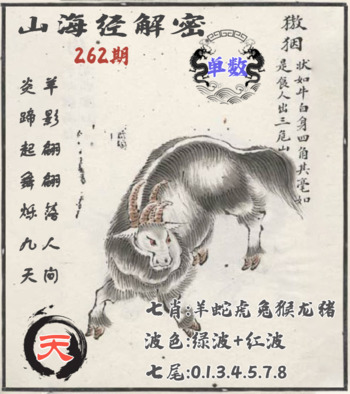 山海经解密
262期
单数
獓
状如牛白身四角其毫如
是食人出三危山
羊影翩翩落人间
炎蹄起舞烁九天
天
七肖:羊蛇虎兔猴龙猪
波色:绿波+红波
七尾:0.1.3.4.5.7.8